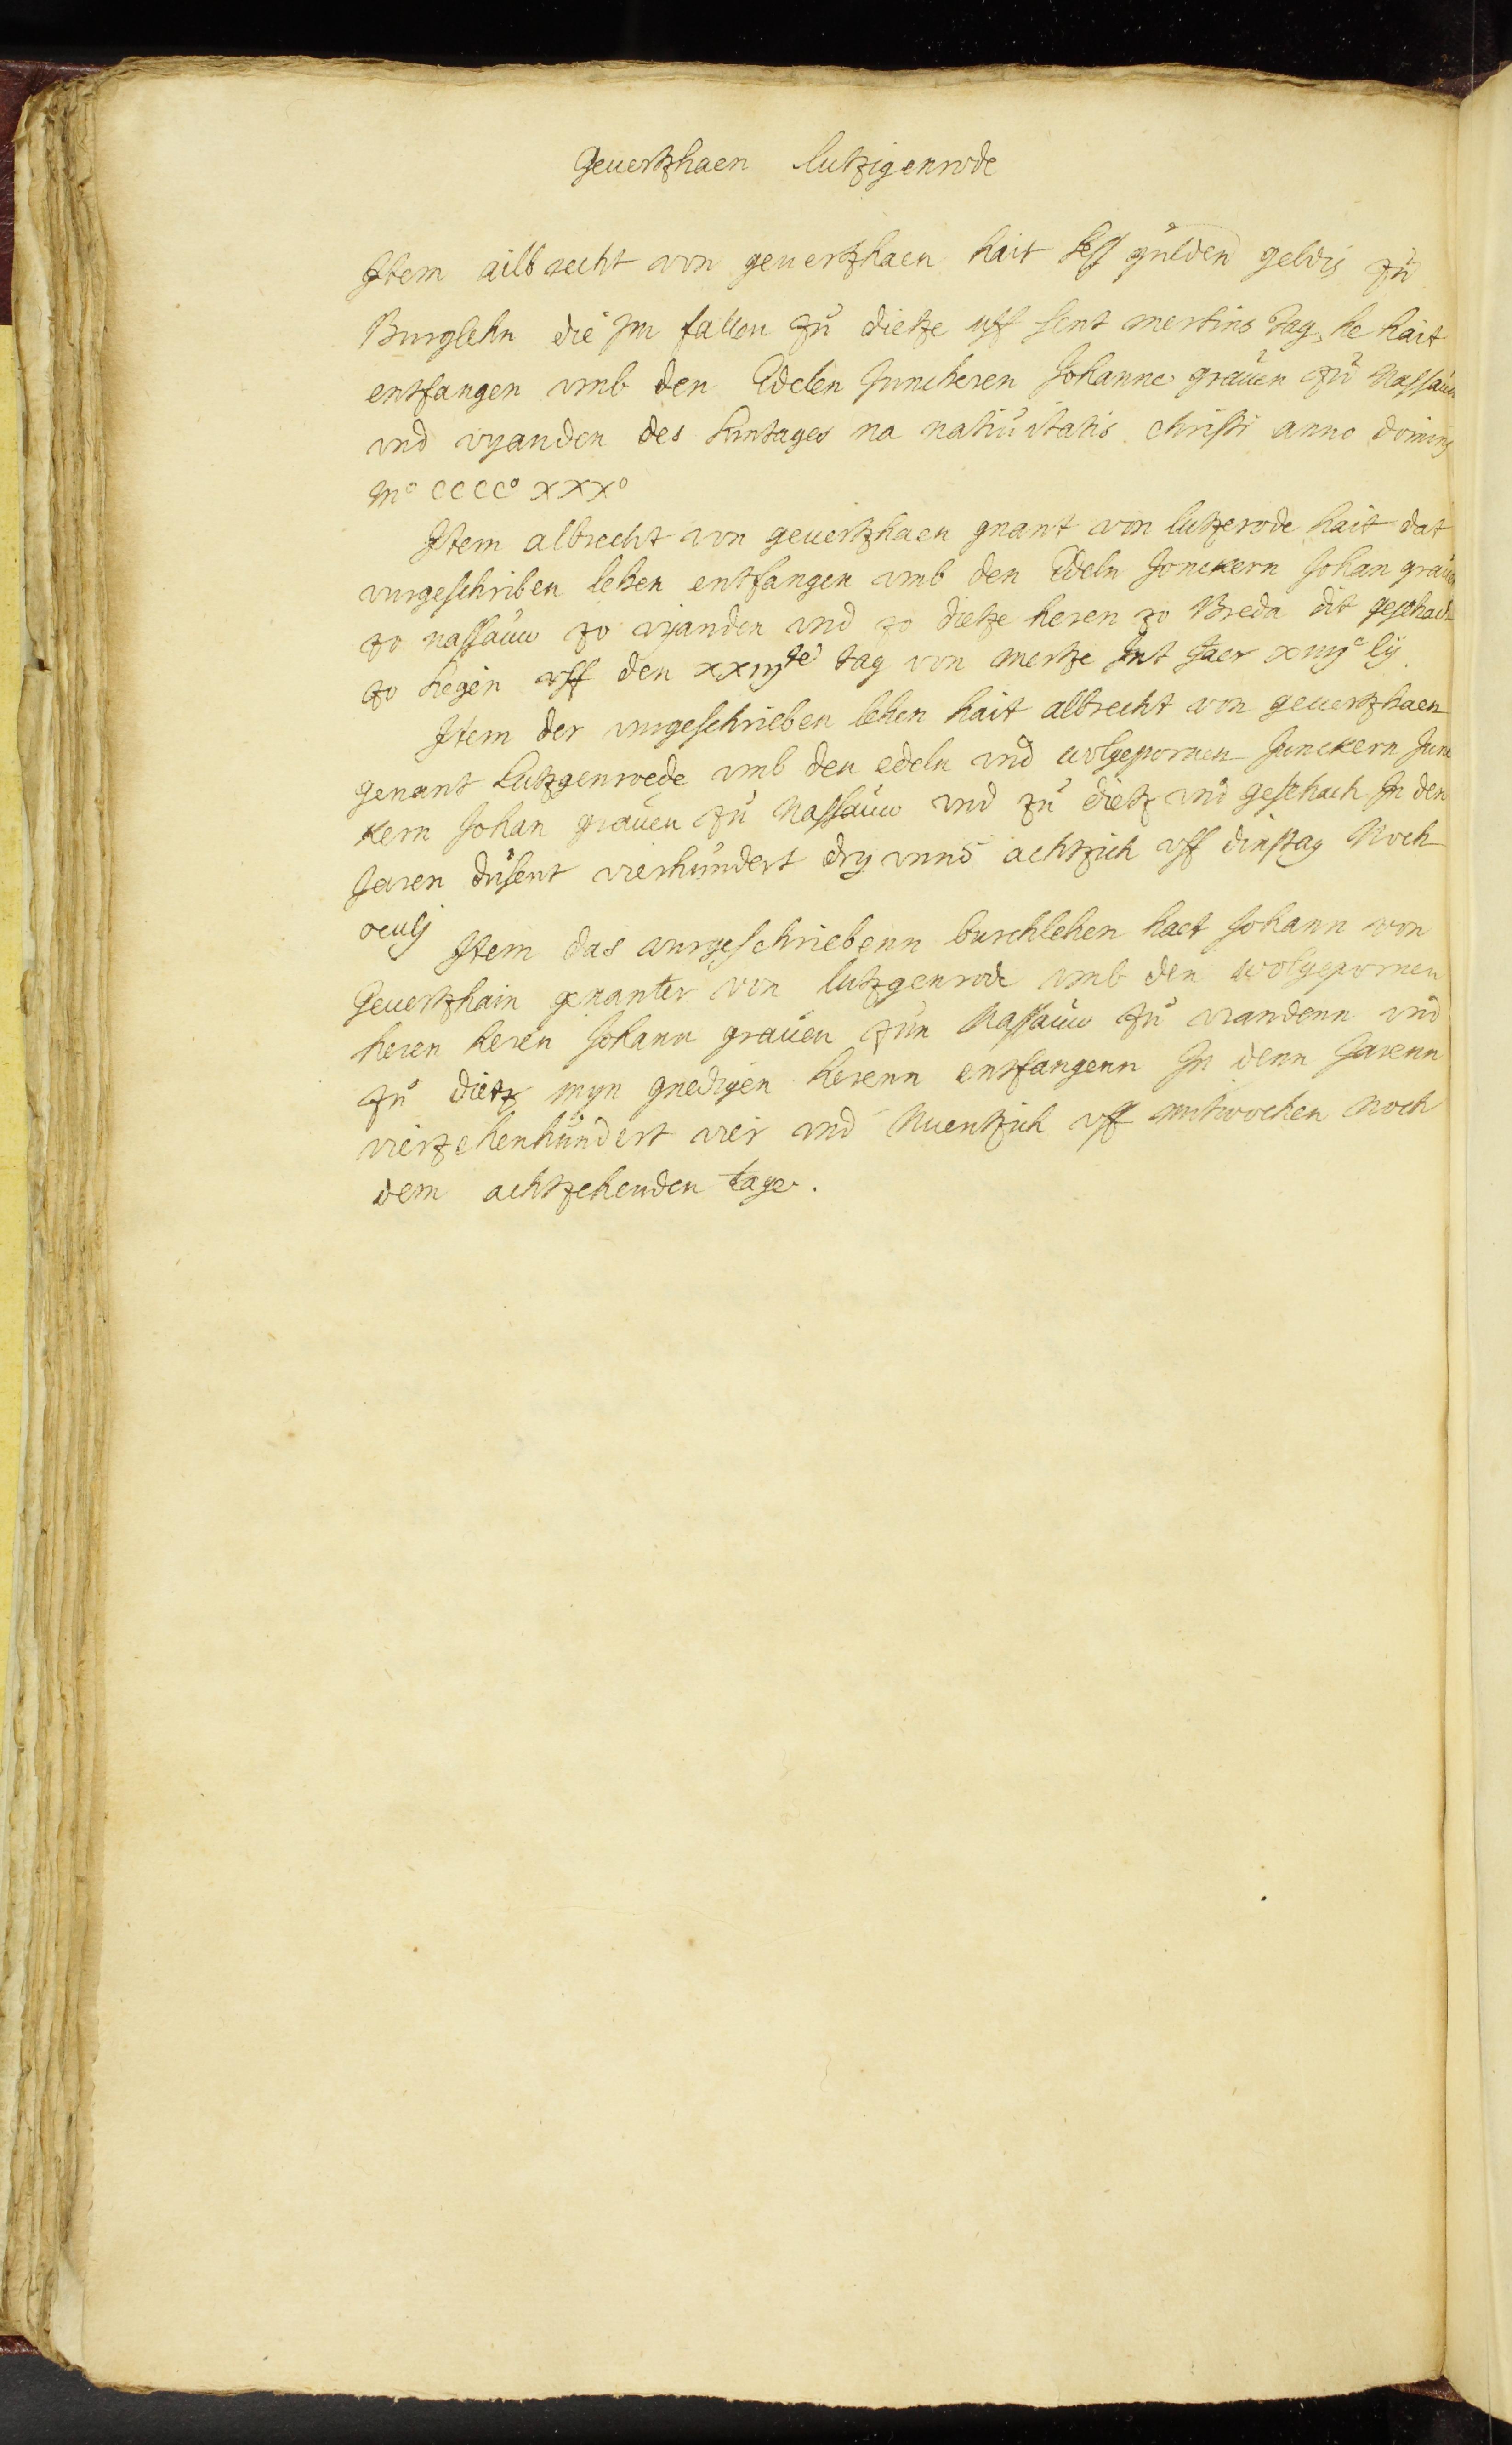 Geuertzhaen lutzigenrode
Item ailbrecht von geuertzhaen hait sess gulden geldis zu
Burglehn die im fallen zu dietze uff sent mertins tag, he hait
entfangen vmb den Edelen Juncheren Johanne grauen zu Nassauw
vnd vyanden des suntages na natiuitatis christi anno dominj
mo cccco xxxo
Item albrecht von geuertzhaen gnant von lutzerode hait dat
vurgeschriben lehen entfangen vmb den Edeln Jonckern Johan grauen
zo nassauw zo vyanden vnd zo dietze heren zo Breda dit geschach
zo hegen vff den xxiijte tag von mertze Int Jaer xiiijc lij
Item der vurgeschrieben lehen hait albrecht von geuertzhaen
genant Lutzgenroede vmb den edeln vnd wolgepornen Junckern Junc
kern Johan grauen zu Nassauw vnd zu dietz vnd geschach In den
Jaren dusent vierhundert dry vnnd achtzich vff dinstag Noch
oculj
Item das vurgeschriebenn burchlehen haet Johann von
Geuertzhain genanter von lutzgenrode vmb den wolgepornen
heren heren Johann grauen zun Nassauw zu viandenn vnd
zu dietz myn gnedigen herenn entfangenn In denn Jarenn
vierzehenhundert vier vnd Nuentzich vff mitwochen noch
dem achtzehenden tage.